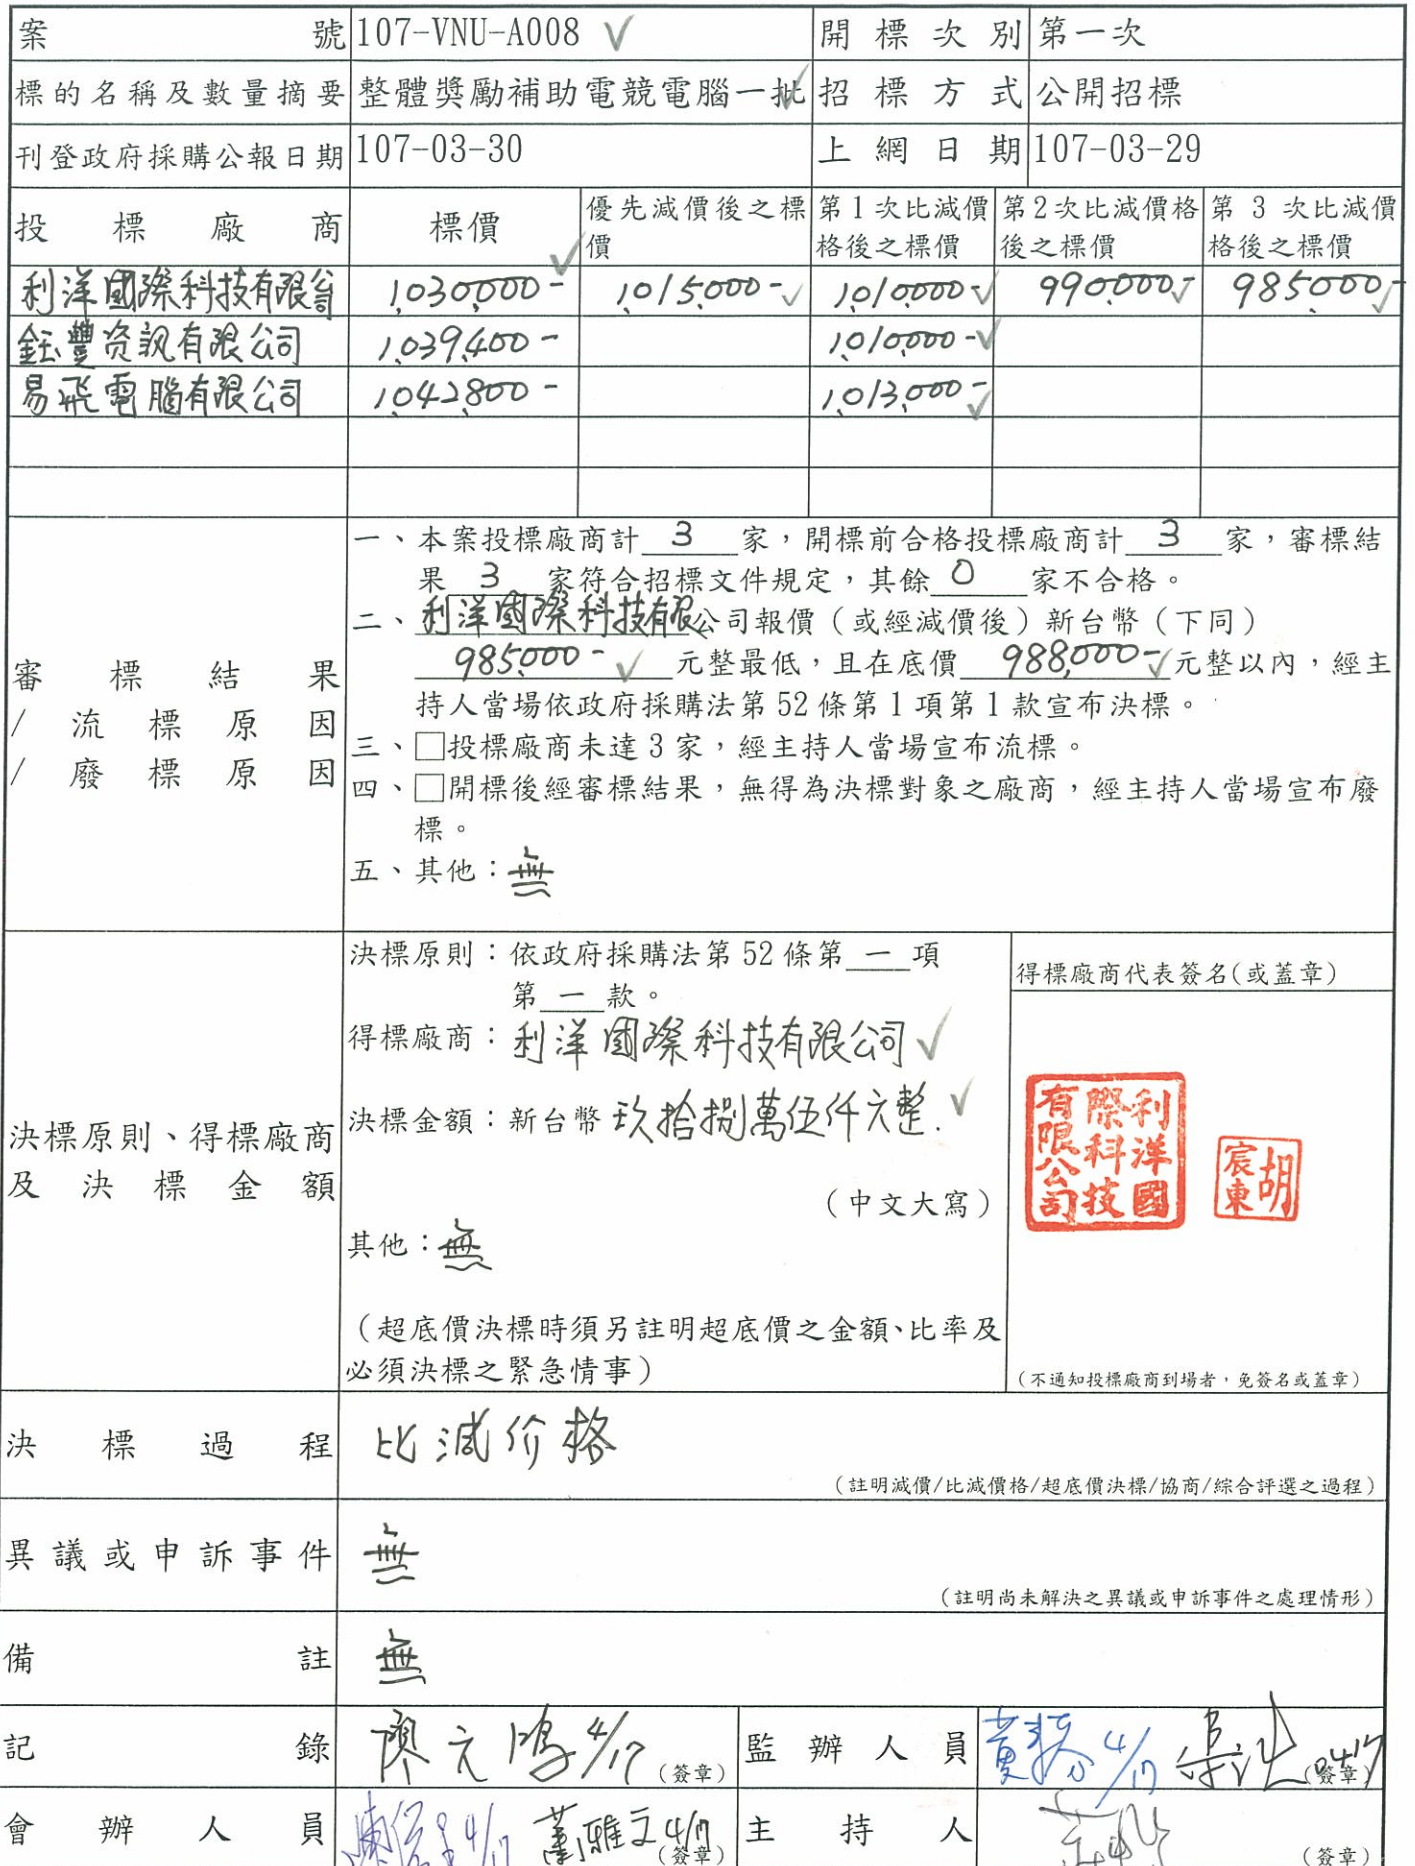 案號 107-VNU-A008 開標次別 第一次
標的名稱及數量摘要 整體獎勵補助電競電腦一批 招標方式 公開招標
刊登政府採購公報日期 107-03-30 上網日期 107-03-29
投標廠商 標價 優先減價後之標價 第1次比減價格後之標價 第2次比減價格後之標價 第3次比減價格後之標價
利洋國際科技有限公司 1,030,000- 1,015,000- 1,010,000- 990,000- 985,000-
鈺豐資訊有限公司 1,039,400- 1,010,000-
易飛電腦有限公司 1,042,800- 1,013,000-
審標結果
/流標原因
/廢標原因
一、本案投標廠商計 3 家，開標前合格投標廠商計 3 家，審標結
果 3 家符合招標文件規定，其餘 0 家不合格。
二、利洋國際科技有限公司報價（或經減價後）新台幣（下同）
985,000- 元整最低，且在底價 988,000- 元整以內，經主
持人當場依政府採購法第52條第1項第1款宣布決標。
三、□投標廠商未達3家，經主持人當場宣布流標。
四、□開標後經審標結果，無得為決標對象之廠商，經主持人當場宣布廢
標。
五、其他：無
決標原則、得標廠商
及決標金額
決標原則：依政府採購法第52條第 一 項
第 一 款。
得標廠商：利洋國際科技有限公司
決標金額：新台幣 玖拾捌萬伍仟元整.
（中文大寫）
其他：無
（超底價決標時須另註明超底價之金額、比率及
必須決標之緊急情事）
得標廠商代表簽名(或蓋章)
利洋國際科技有限公司
胡宸東
（不通知投標廠商到場者，免簽名或蓋章）
決標過程 比減价格
（註明減價/比減價格/超底價決標/協商/綜合評選之過程）
異議或申訴事件 無
（註明尚未解決之異議或申訴事件之處理情形）
備註 無
記錄 廖元鴻 4/17 （簽章） 監辦人員 黃 4/17 0417 （簽章）
會辦人員 4/17 蕭雅文 4/17 （簽章） 主持人 （簽章）